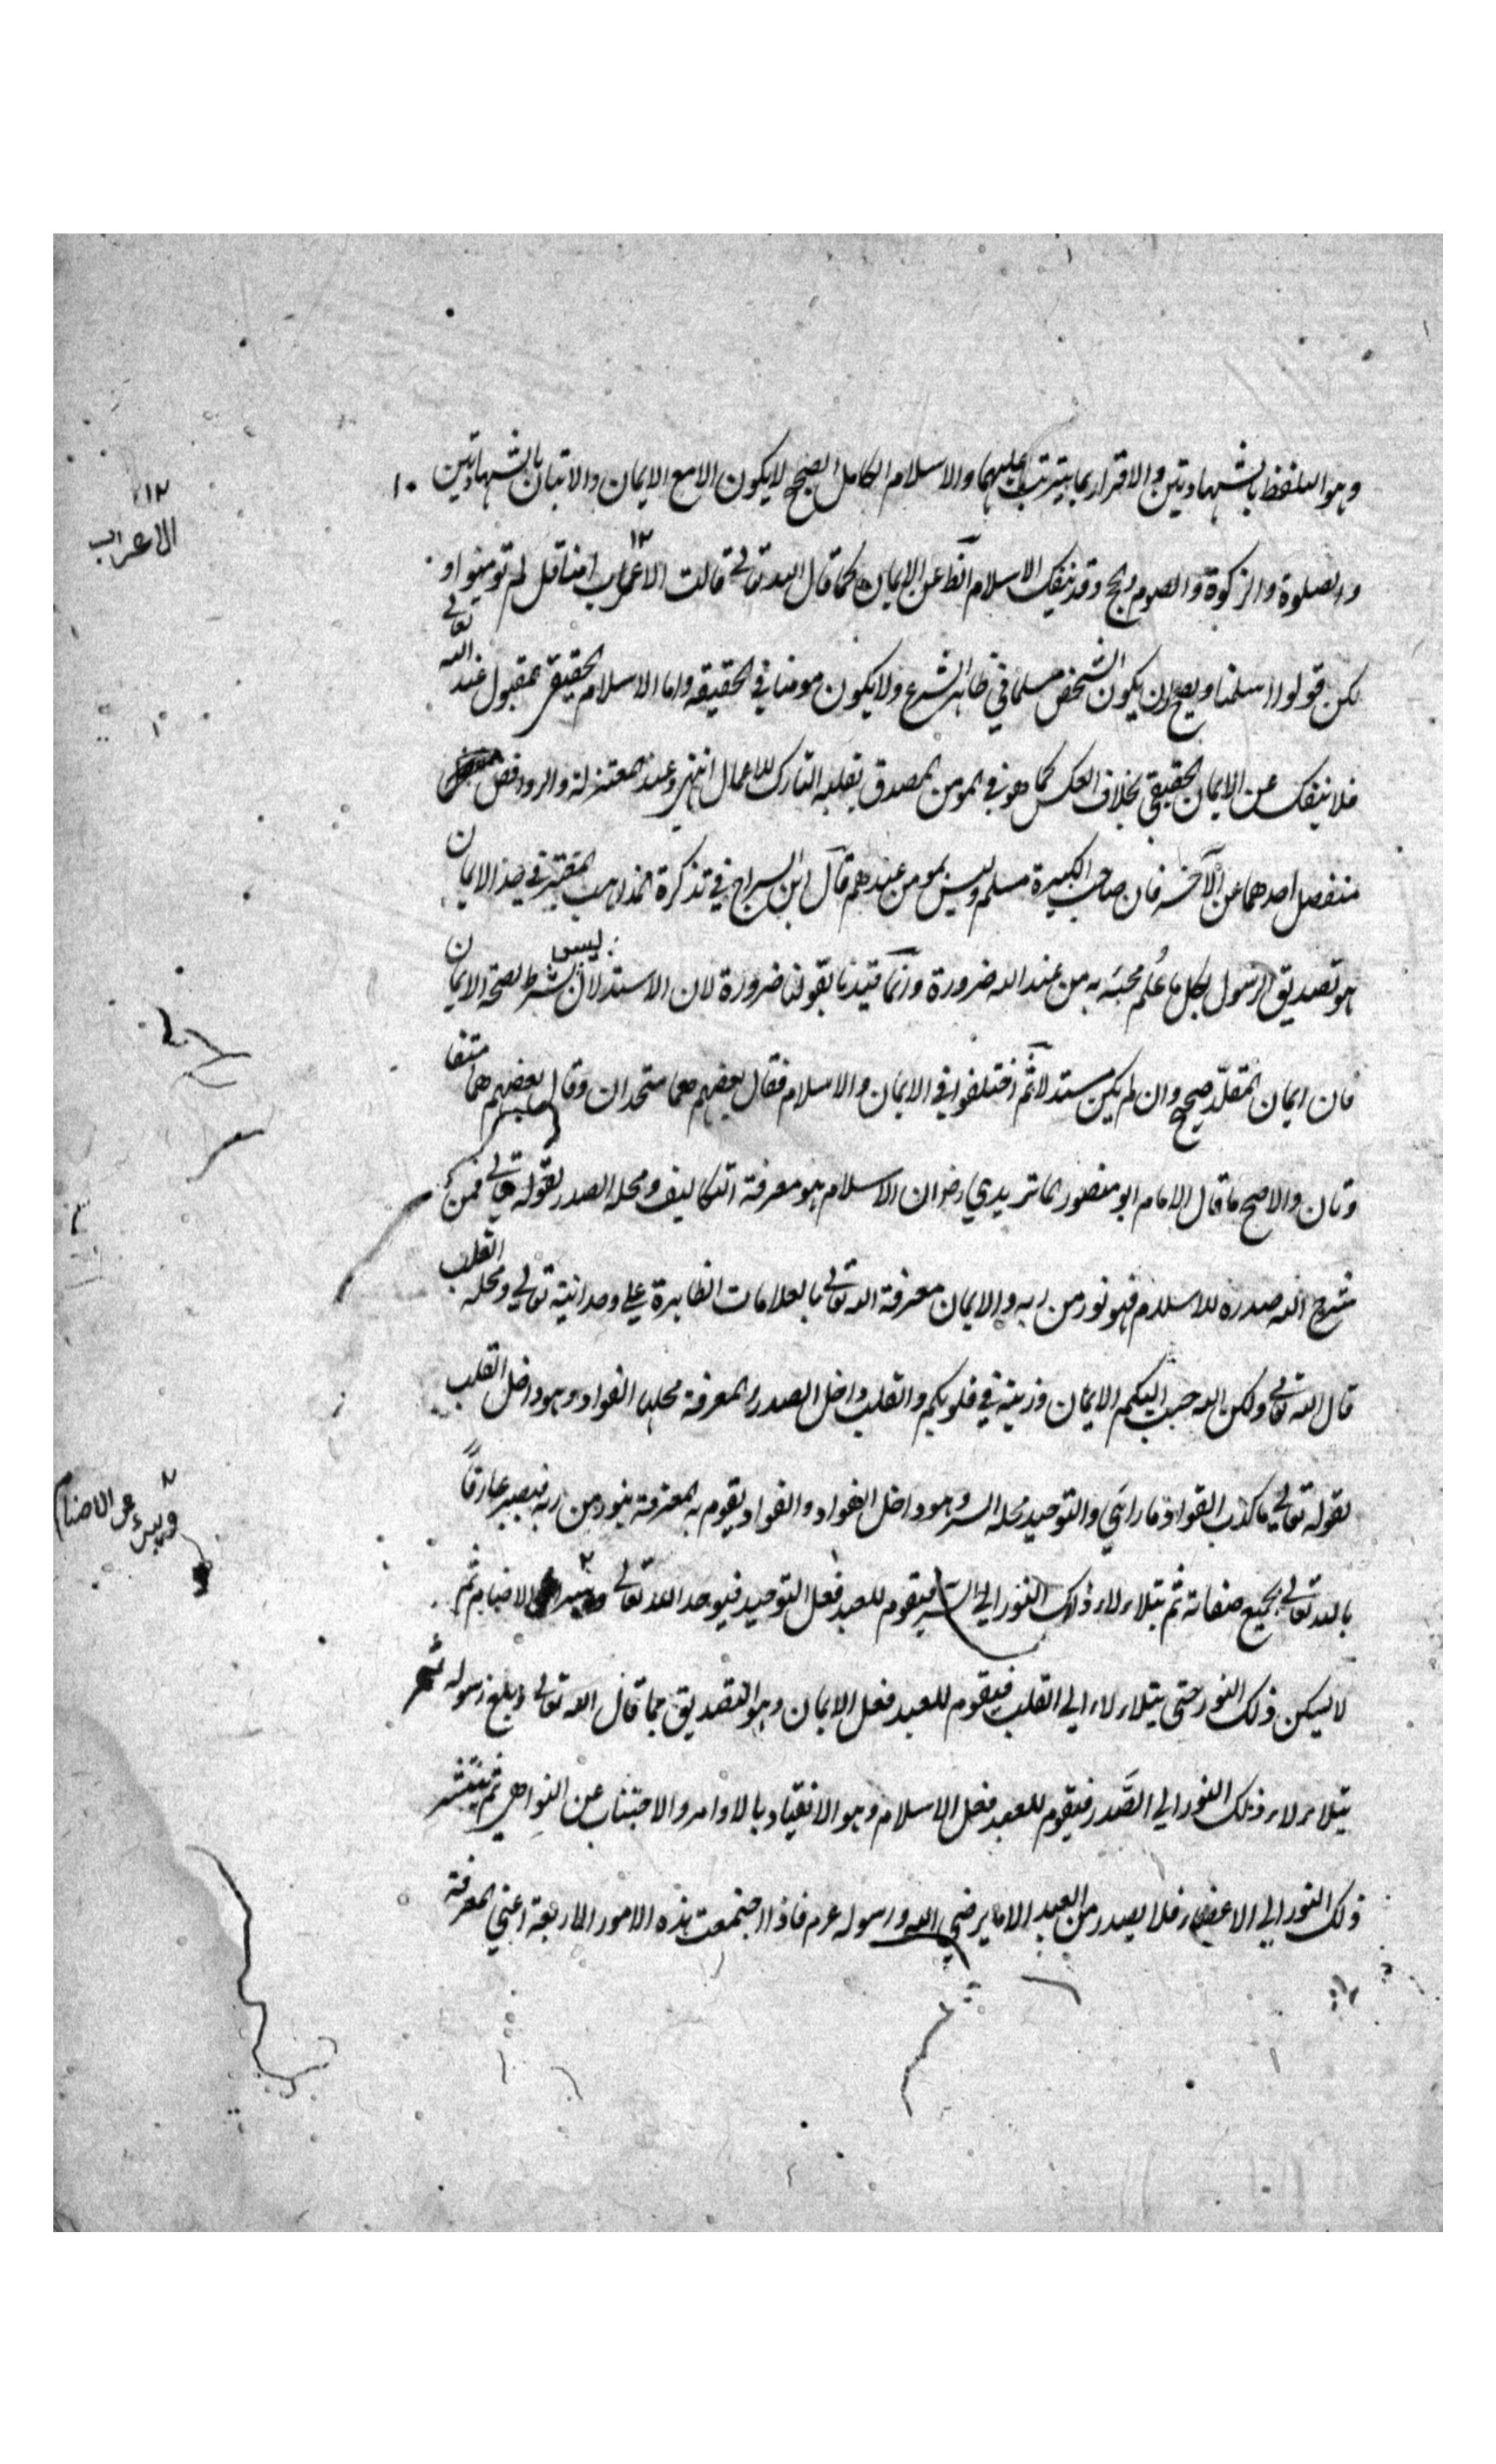 وهو التلفظ بالشهادتين والاقرار بما يترتب عليهما والاسلام الكامل الصحيح لا يكون الا مع الايمان والاتيان بالشهادتين
والصلوة والزكوة والصوم والحج وقد ينفك الاسلام عن الايمان كما قال الله تعالى قالت الاعراب امنا قل لم تومنوا و
لكن قولوا اسلمنا ويصح ان يكون الشخص مسلما في ظاهر الشرع ولا يكون مومنا في الحقيقه واما الاسلام الحقيقي المقبول عند الله تعالى
فلا ينفك عن الايمان الحقيقي بخلاف العكس كما هو في المومن المصدق بقلبه التارك للاعمال انتهى وعند المعتزلة والروافض
منفصل احدهما عن الآخر فان صاحب الكبيرة مسلم وليس بمومن عندهم قال ابن السراج في تذكرة المذاهب في حد الايمان
هو تصديق الرسول بكل ما عُلم مجيئه به من عند الله ضرورة وانما قيدنا بقولنا ضرورة لان الاستدلال ليس بشرط لصحة الايمان
فان ايمان المقلّد صحيح وان لم يكن مستدلا ثم اختلفوا في الايمان والاسلام فقال بعضهم هما متحدان وقال بعضهم هما متغا
والاصح ما قال الامام ابو منصور الماتريدي رض ان الاسلام هو معرفة التكاليف ومحله الصدر لقوله تعالى فمن
شرح الله صدره للاسلام فهو نور من ربه والايمان معرفة الله تعالى بالعلامات الظاهرة على وحدانيته تعالى ومحله القلب
قال الله تعالى ولكن الله حبب اليكم الايمان وزينه في قلوبكم والقلب داخل الصدر والمعرفة محلها الفواد وهو داخل القلب
لقوله تعالى ما كذب الفواد ما راى والتوحيد محله السر وهو داخل الفواد والفواد يقوم به المعرفة بنور من ربه فيصير عارفاً
بالله تعالى بجميع صفاته ثم يتلاءلاء ذلك النور الى السر فيقوم للعبد فعل التوحيد فيوحد الله تعالى الاصنام ثم
لا يسكن ذلك النور حتى يتلاءلاء الى القلب فيقوم للعبد فعل الايمان وهو التصديق بما قال الله تعالى وبلغ رسوله ثم
يتلاءلاء ذلك النور الى الصَّدر فيقوم للعبد فعل الاسلام وهو الانقياد بالاوامر والاجتناب عن النواهي ثم ينتشر
ذلك النور الى الاعضاء فلا يصدر من العبد الا ما يرضى الله ورسوله عم فاذا اجتمعت هذه الامور الاربعة اعني المعرفة
١٢
الاعراب
ويتبرء عن الاصنام